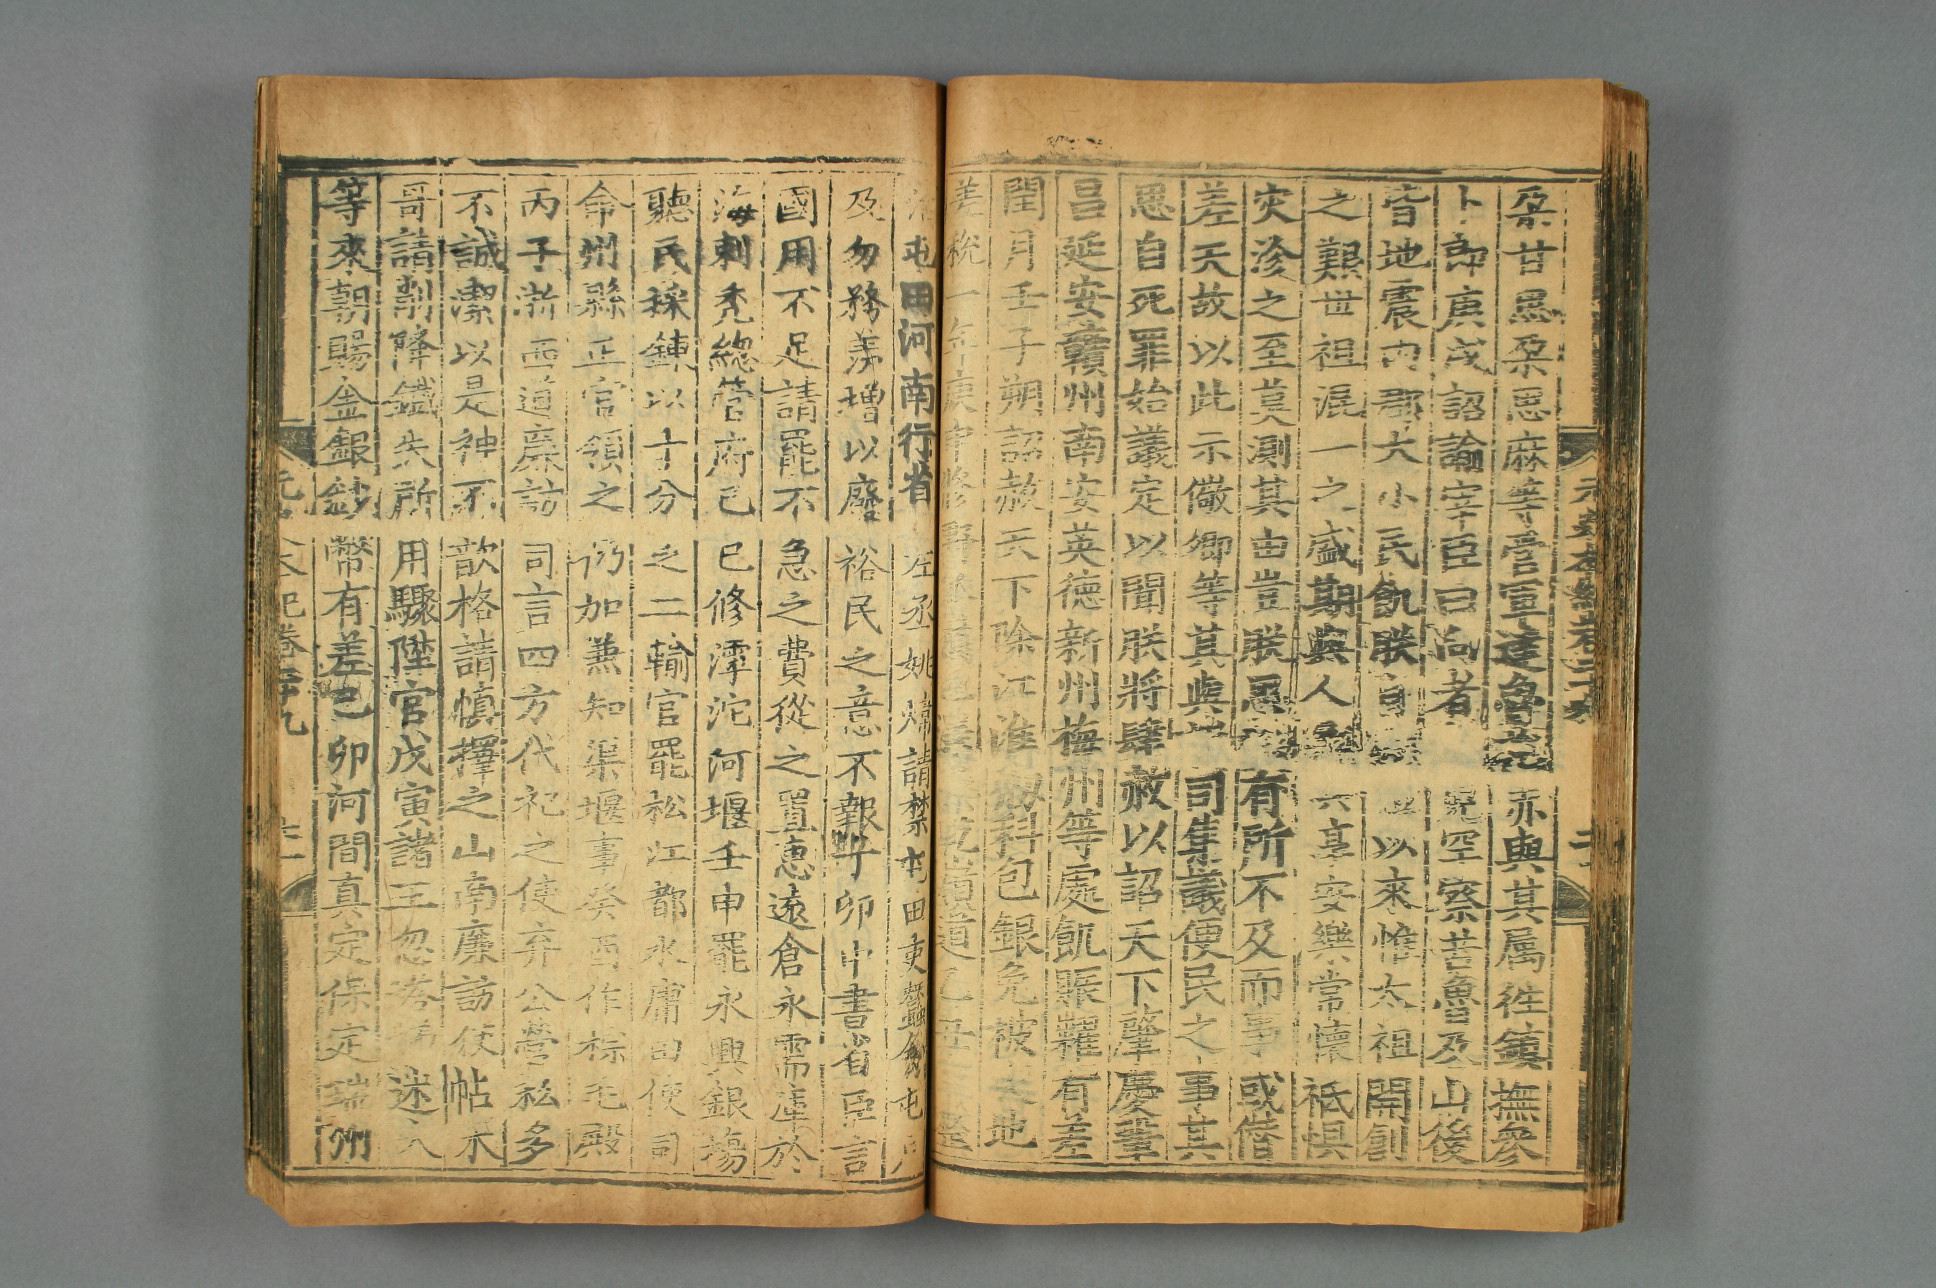 朵甘思朵思麻等管軍達魯花赤與其屬往鎮撫參
卜郎庚戌詔諭宰臣曰向者寬空察苦魯及山後
皆地震內郡大小民飢朕自以來惟太祖開創
之艱世祖混一之盛期與人共享安樂常懷祗惧
灾沴之至莫測其由豈朕思有所不及而事或僣
差天故以此示儆卿等其與司集議便民之事其
思自死罪始議定以聞朕將肆赦以詔天下肇慶鞏
昌延安贛州南安英德新州梅州等處飢賑糶有差
閏月壬子朔詔赦天下除江淮科包銀免被地
差稅一年庚申修
屯田河南行省左丞姚煒請禁屯田吏蠶食屯
及勿務羡增以廢裕民之意不報丁卯中書省臣言
國用不足請罷不急之費從之置惠遠倉永需庫於
海剌禿總管府己巳修滹沱河堰壬申罷永興銀場
聽民採鍊以十分之二輸官罷松江都水庸田使司
命州縣正官領之仍加兼知渠堰事癸酉作棕毛殿
丙子浙西道廉訪司言四方代祀之使弃公營私多
不誠潔以是神不歆格請慎擇之山南廉訪使帖木
哥請削降鐵失所用驟陞官戊寅諸王忽答迷失
等來朝賜金銀鈔幣有差己卯河間真定保定瑞州